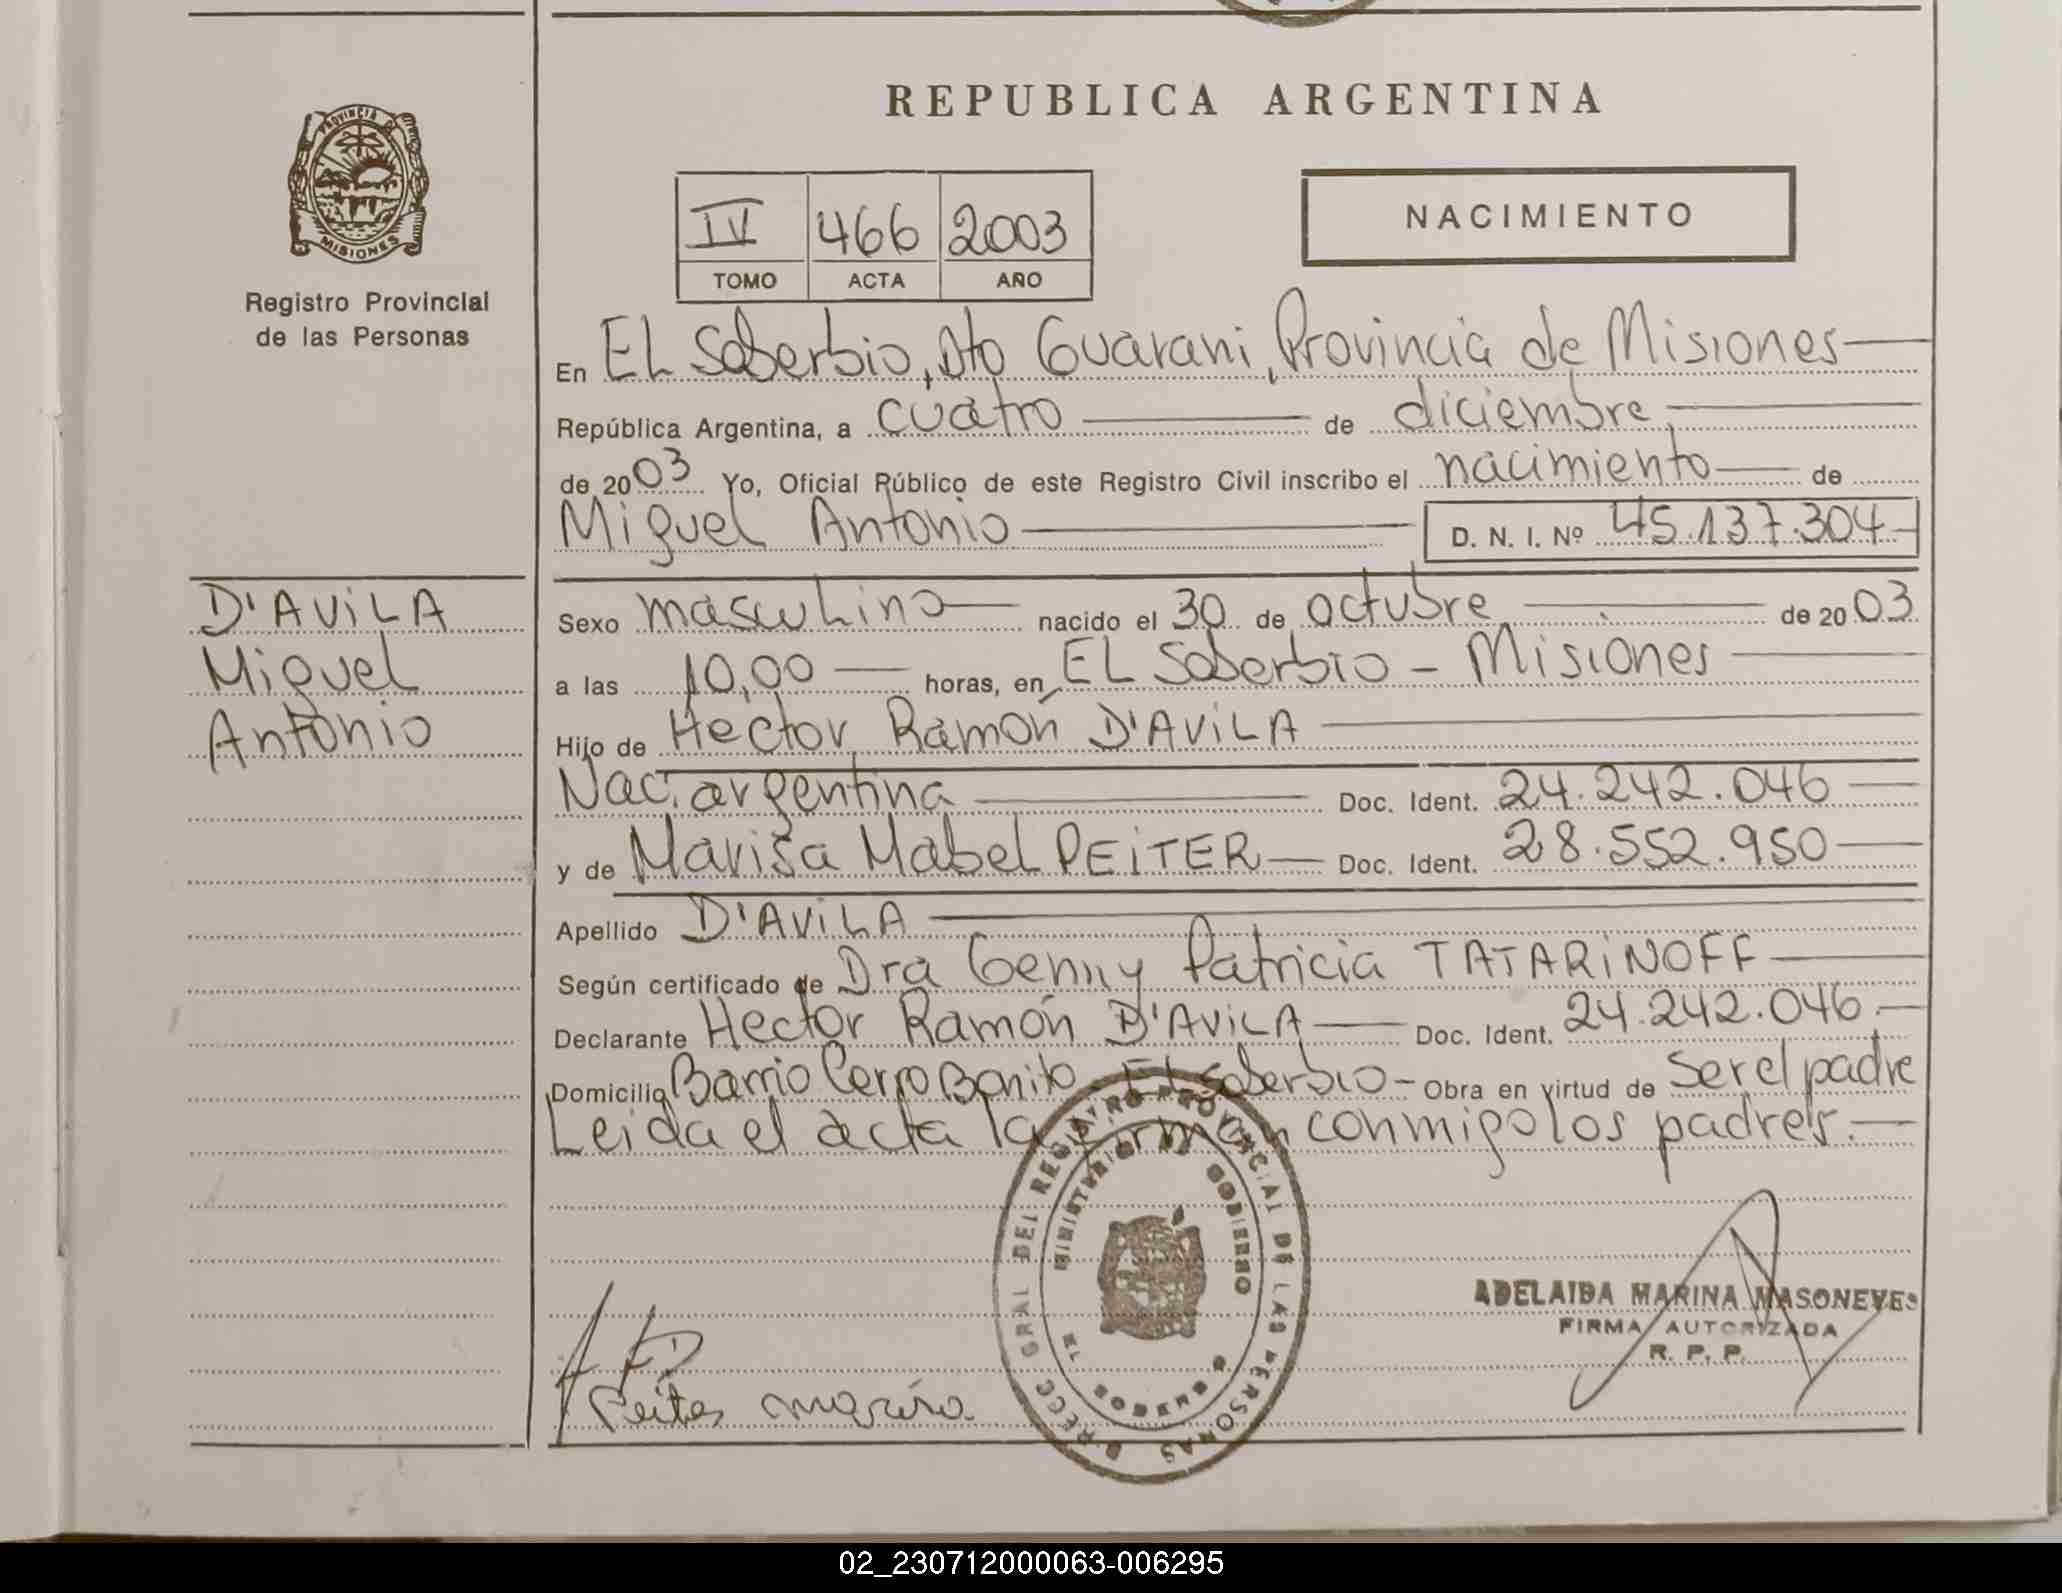 PROVINCIA DE
MISIONES
Registro Provincial
de las Personas
D'AVILA
Miguel
Antonio
REPUBLICA ARGENTINA
IV 466 2003
TOMO ACTA AÑO
NACIMIENTO
En EL Soberbio, Dto Guarani, Provincia de Misiones
República Argentina, a cuatro de diciembre
de 2003 Yo, Oficial Público de este Registro Civil inscribo el nacimiento de
Miguel Antonio D. N. I. Nº 45.137.304
Sexo masculino nacido el 30 de octubre de 2003
a las 10,00 horas, en EL Soberbio - Misiones
Hijo de Hector Ramón D'AVILA
Nac. argentina Doc. Ident. 24.242.046
y de Marisa Mabel PEITER Doc. Ident. 28.552.950
Apellido D'AVILA
Según certificado de Dra Genny Patricia TATARINOFF
Declarante Hector Ramón D'AVILA Doc. Ident. 24.242.046
Domicilio Barrio Cerro Bonito - El Soberbio - Obra en virtud de ser el padre
Leida el acta la firman conmigo los padres.
DIRECC GRAL DEL REGISTRO PROVINCIAL DE LAS PERSONAS
MINISTERIO DE GOBIERNO
ADELAIDA MARINA MASONEVES
FIRMA AUTORIZADA
R. P. P.
Peiter Marisa
02_230712000063-006295